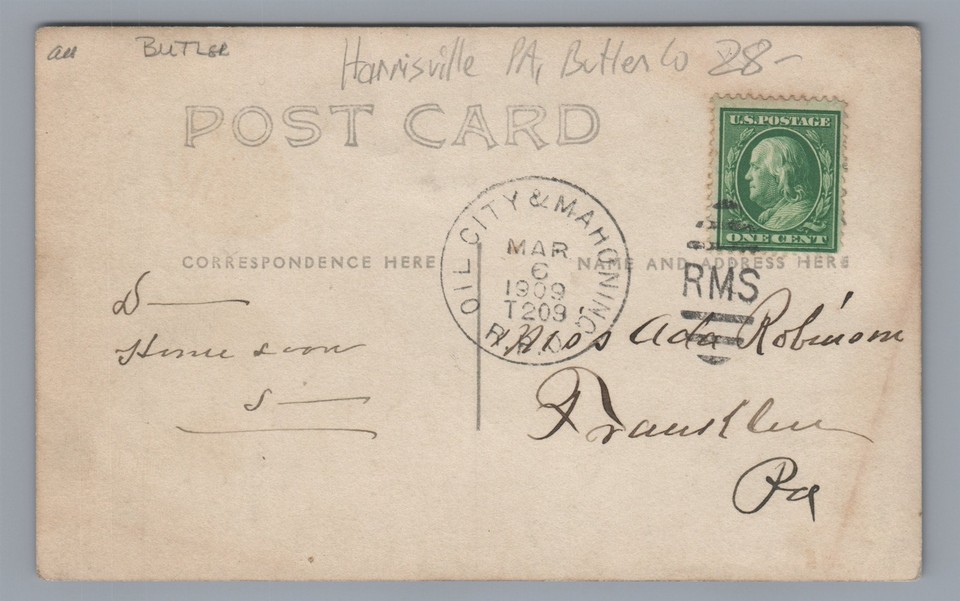 all BUTLER Harrisville PA, Butler Co 28-
POST CARD
U.S. POSTAGE
ONE CENT
CORRESPONDENCE HERE
NAME AND ADDRESS HERE
OIL CITY & MAHONING R.P.O.
MAR
6
1909
T209
RMS
D—
Home soon
S—
Miss Ada Robinson
Franklin
Pa